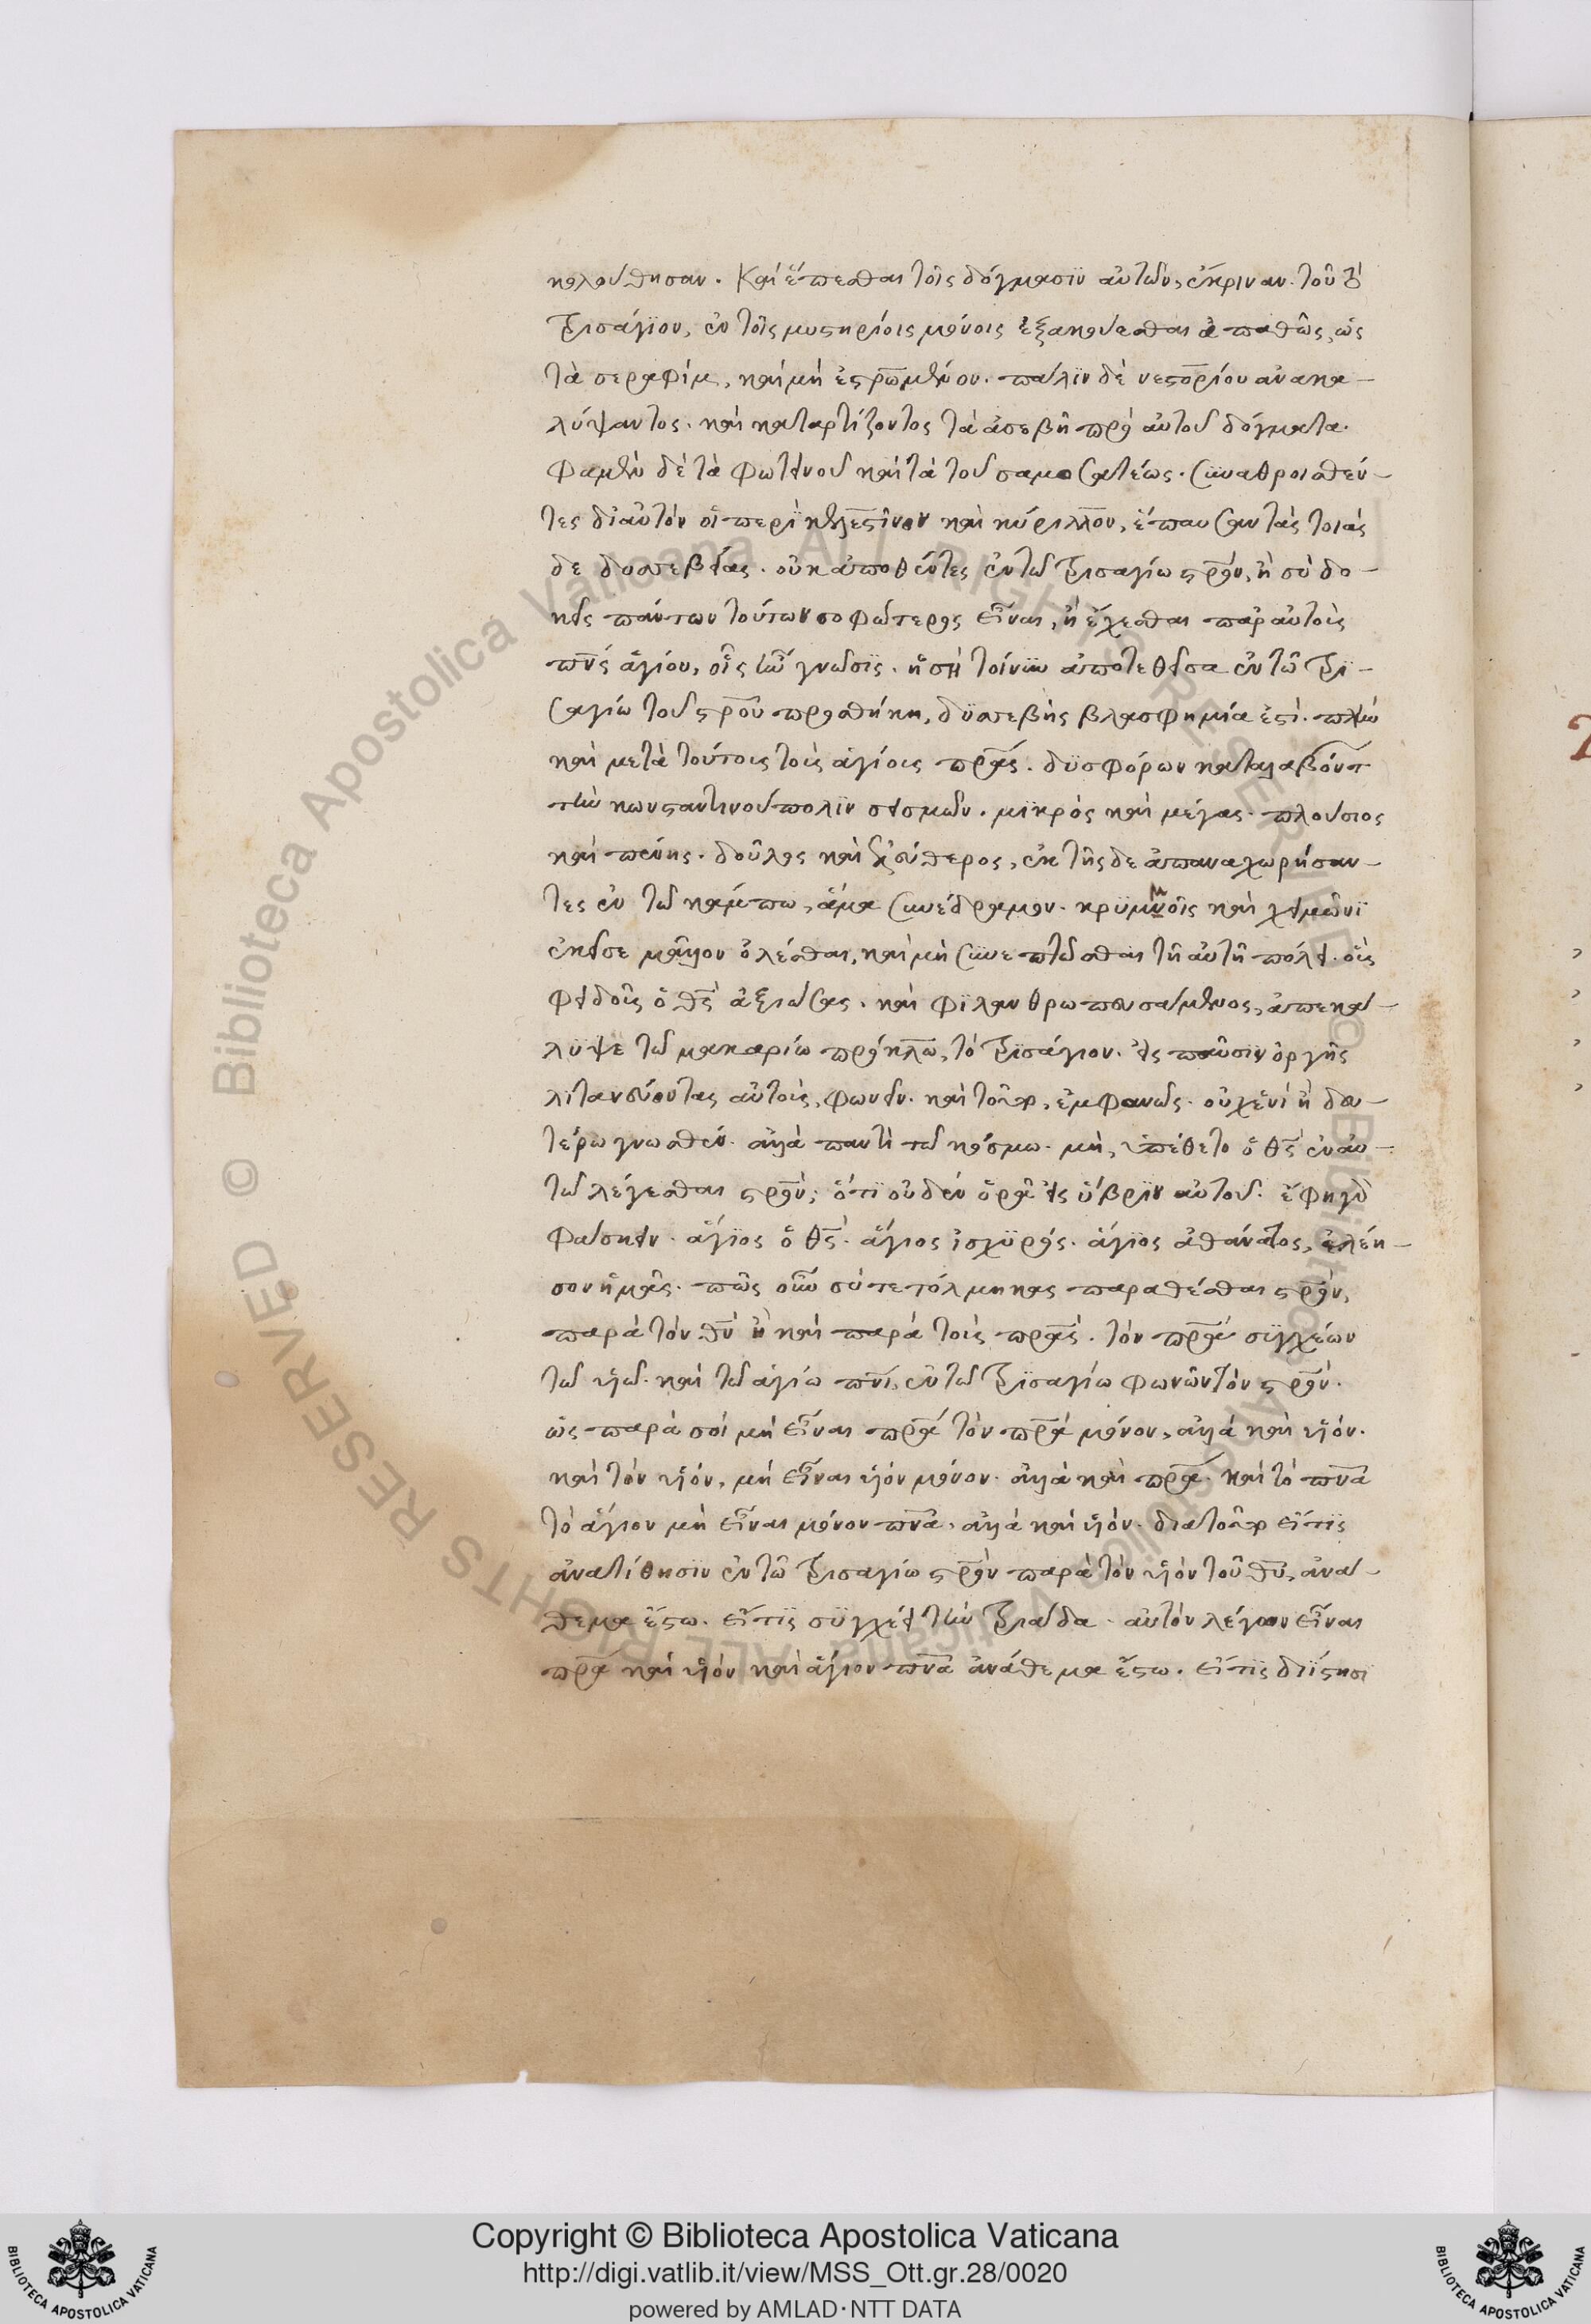 κολούθησαν. Καὶ ἕπεσθαι τοῖς δόγμασϊν αὐτῶν, ἔκριναν. τοῦ τὸ
τρισάγϊον, ἐν τοῖς μυστηρίοις μόνοις ἐξακούεσθαι ἀπαθῶς, ὡς
τὰ σεραφίμ, καὶ μὴ ἐσταυρωμένον. πάλϊν δὲ νεστορίου ἀνακα–
λύψαντος. καὶ καταρτίζοντος τὰ ἀσεβῆ πρὸ αὐτοῦ δόγματα.
φαμὲν δὲ τὰ φωτεινοῦ καὶ τὰ τοῦ σαμοσατέως. συναθροισθέν–
τες δι αὐτὸν οἱ περὶ κελεστῖνον καὶ κύριλλον, ἔπαυσαν τὰς τοιάς
δε δυσσεβείας. οὐκ ἀποθέντες ἐν τῶ τρισαγίω σταυρόν, ἢ σὺ δο–
κεῖς πάντων τούτων σοφώτερος εἶναι, ἢ ἔχεσθαι παρ αὐτοῖς
πνς ἁγίου, οἷς ἦν γνῶσϊς. ἡ σὴ τοίνυν ἀποτεθεῖσα ἐν τῶ τρι–
σαγίω τοῦ στροῦ προσθήκη, δϋσσεβὴς βλασφημία ἐστὶ. πλὴν
καὶ μετὰ τούτοις τοῖς ἁγίοις πρας. δϋσφόρων καταλαβόντ
τὴν κωνσταντινούπολϊν σεισμῶν. μϊκρὸς καὶ μέγας. πλούσιος
καὶ πένης. δοῦλος καὶ ἐλεύθερος, ἐκ τῆς δε ἀπαναχωρήσαν–
τες ἐν τῶ κάμπω, ἅμα συνέδραμον. κρϋμνοῖς καὶ χειμῶνϊ
ἐκεῖσε μᾶλλον ὀλέσθαι, καὶ μὴ συνεπτῶσθαι τῆ αὐτῆ πόλει. οἷς
φειδοῖς ὁ θς ἀξιώσας. καὶ φϊλανθρωπευσάμενος, ἀπεκά–
λϋψε τῶ μακαρίω πρόκλω, τὸ τρϊσάγιον. εἰς παῦσϊν ὀργῆς
λιτανεύοντας αὐτοῖς, φωνεῖν. καὶ τοῦτο, ἐμφανῶς. οὐχ ἑνὶ ἢ δευ–
τέρω γνωσθέν. ἀλλὰ παντὶ τῶ κόσμω. μὴ, ὑπέθετο ὁ θς ἐν αὐ–
τῶ λέγεσθαι στρόν; ὅτϊ οὐδὲν ὁρᾶ εἰς ὕβρϊν αὐτοῦ. ἔφη γὰρ
φάσκειν. ἅγϊος ὁ θς. ἅγιος ἰσχϋρός. ἅγϊος ἀθάνατος, ἐλέη–
σον ἡμᾶς. πῶς οὖν σὺ τετόλμηκας παραθέσθαι στρόν,
παρὰ τὸν θν ἢ καὶ παρὰ τοῖς πρας. τὸν πρα σϋγχέων
τῶ υἱῶ. καὶ τῶ ἁγίω πνι, ἐν τῶ τρϊσαγίω φωνῶν τὸν στρόν.
ὡς παρὰ σοὶ μὴ εἶναι πρα τὸν πρα μόνον, ἀλλὰ καὶ υἱόν.
καὶ τὸν υἱόν, μὴ εἶναι υἱὸν μόνον. ἀλλὰ καὶ πρα. καὶ τὸ πνα
τὸ ἅγιον μὴ εἶναι μόνον πνα. ἀλλὰ καὶ υἱόν. διατοῦτο εἴτϊς
ἀνατίθησϊν ἐν τῶ τρισαγίω στρὸν παρὰ τὸν υἱὸν τοῦ θυ, ἀνά–
θεμα ἔστω. εἴτϊς σϋγχέει τὴν τριάδα. αὐτὸν λέγων εἶναι
πρα καὶ υἱὸν καὶ ἅγιον πνα ἀνάθεμα ἔστω. εἴτϊς διΐστησϊ
Copyright © Biblioteca Apostolica Vaticana
http://digi.vatlib.it/view/MSS_Ott.gr.28/0020
powered by AMLAD·NTT DATA